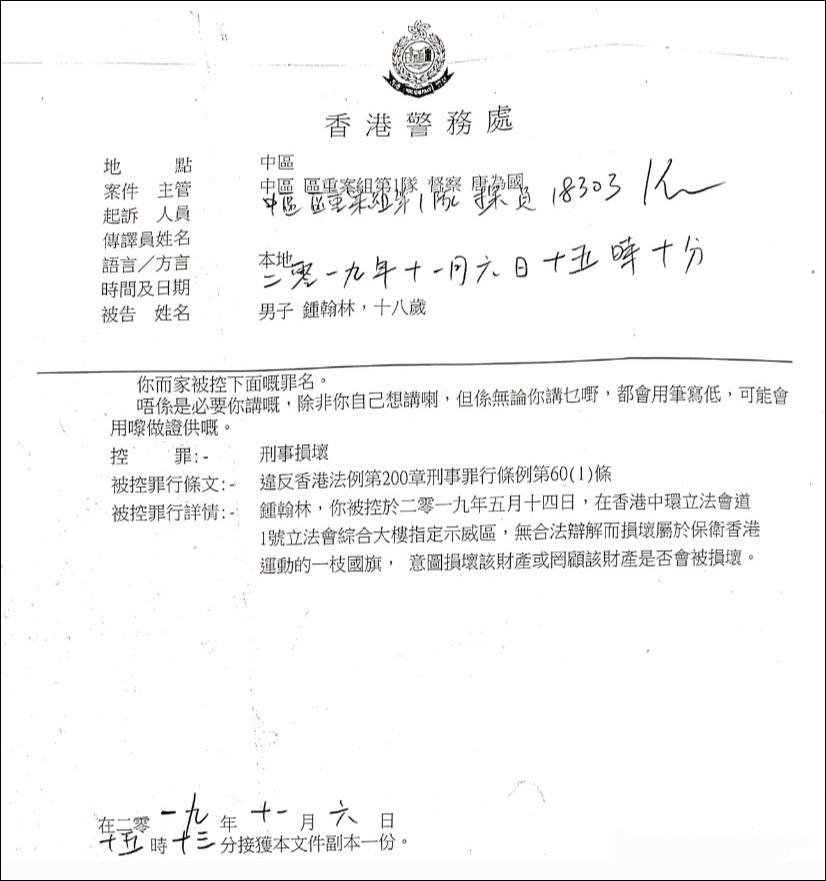 香港警務處
地 點 中區
案件 主管 中區 區重案組第1隊 督察 唐為國
起訴 人員 中區 區重案組第1隊 探員 18303
傳譯員姓名
語言／方言 本地
時間及日期 二零一九年十一月六日十五時十分
被告 姓名 男子 鍾翰林，十八歲
你而家被控下面嘅罪名。
唔係是必要你講嘅，除非你自己想講喇，但係無論你講乜嘢，都會用筆寫低，可能會
用嚟做證供嘅。
控 罪:- 刑事損壞
被控罪行條文:- 違反香港法例第200章刑事罪行條例第60(1)條
被控罪行詳情:- 鍾翰林，你被控於二零一九年五月十四日，在香港中環立法會道
1號立法會綜合大樓指定示威區，無合法辯解而損壞屬於保衛香港
運動的一枝國旗， 意圖損壞該財產或罔顧該財產是否會被損壞。
在二零一九年十一月六日
十五時十三分接獲本文件副本一份。